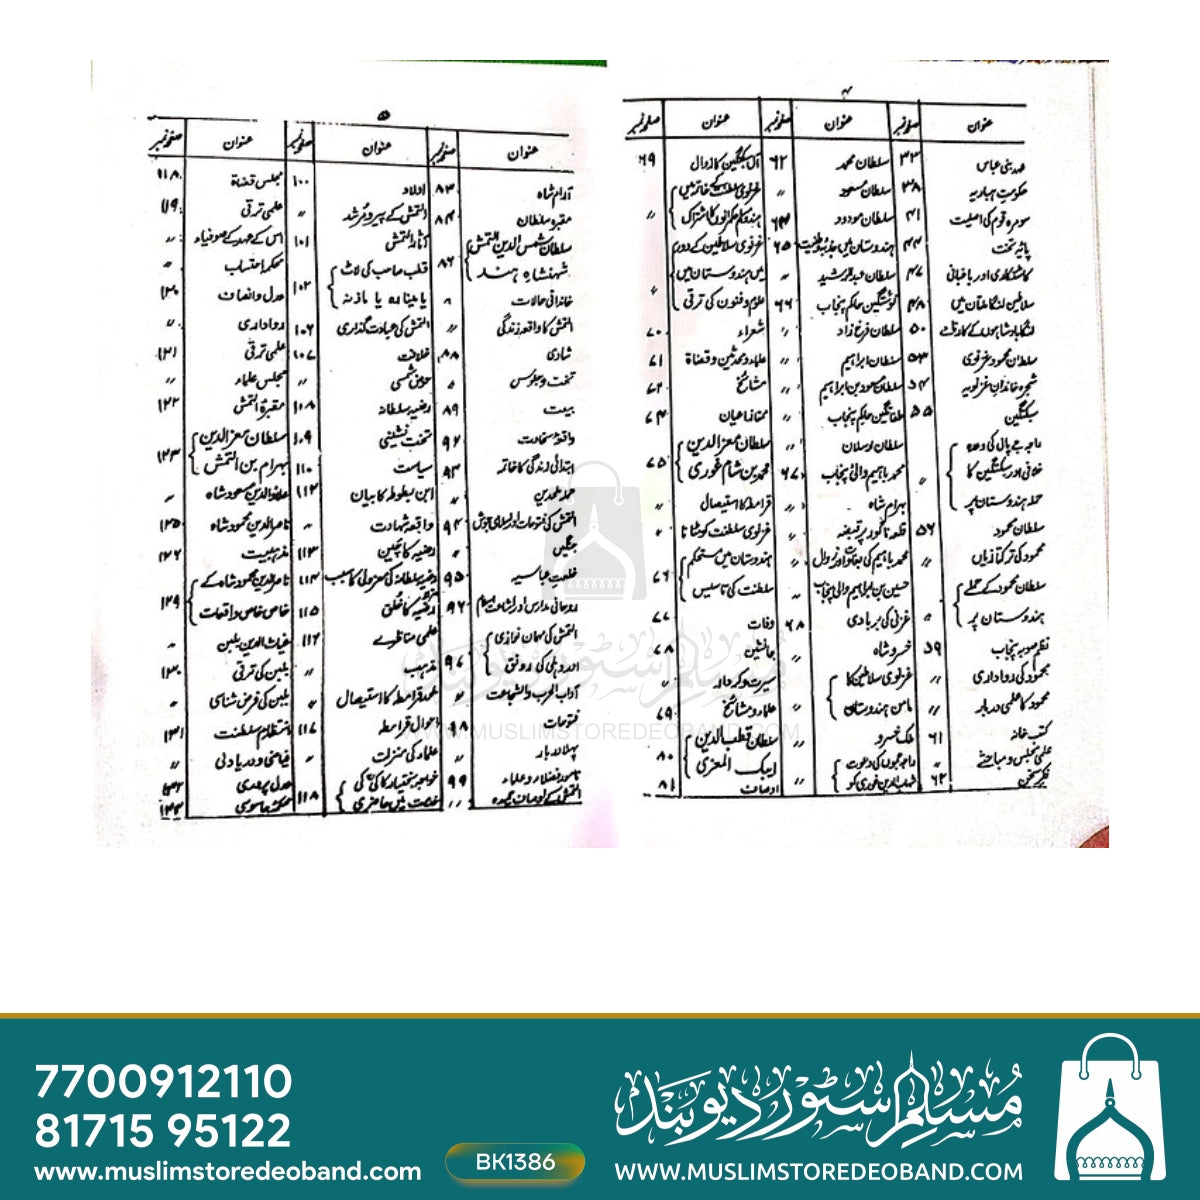 ۴
عنوان صفحہ نمبر عنوان صفحہ نمبر عنوان صفحہ نمبر
عہد بنی عباس ۳۳ سلطان محمد ۶۲ آل سبکتگین کا زوال ۶۹
حکومت ہباریہ ۳۸ سلطان مسعود 〃 غزنوی سلطنت کے خاتمہ میں
سومرہ قوم کی اصلیت ۴۱ سلطان مودود ۶۴ ہندو مسلم حکمرانوں کا اشتراک 〃
پائیہ تخت ۴۴ ہندوستان میں جذبۂ وطنیت ۶۵ غزنوی سلاطین کے دور
کاشتکاری اور باغبانی ۴۷ سلطان عبدالرشید 〃 میں ہندوستان میں
سلاطین لنگاہ ملتان میں ۴۸ نوشتگین حاکم پنجاب ۶۶ علوم و فنون کی ترقی 〃
لنگاہ بادشاہوں کے کارنامے ۵۰ سلطان فرخ زاد 〃 شعراء ۷۰
سلطان محمود غزنوی ۵۳ سلطان ابراہیم 〃 علماء و محدثین و قضاۃ ۷۱
شجرہ خاندان غزنویہ ۵۴ سلطان مسعود بن ابراہیم 〃 مشائخ ۷۲
سبکتگین ۵۵ طغاتگین حاکم پنجاب 〃 ۷۴
راجہ جے پال کی دعوہ سلطان ارسلان 〃 سلطان معز الدین
خلافی اور سبکتگین کا محمد باہیم والئ پنجاب ۶۷ محمد بن شام غوری ۷۵
حملہ ہندوستان پر 〃 بہرام شاہ قرامطہ کا استیصال 〃
سلطان محمود ۵۶ قلعہ ناگور پر قبضہ 〃 غزنوی سلطنت کو مٹانا 〃
محمود کی ترکتازیاں 〃 محمد باہیم کی بغاوت اور زوال 〃 ہندوستان میں مستحکم
سلطان محمود کے حملے حسین بن ابراہیم والی پنجاب 〃 سلطنت کی تاسیس ۷۶
ہندوستان پر 〃 غزنی کی بربادی ۶۸ وفات ۷۷
نظم صوبہ پنجاب ۵۹ خسرو شاہ 〃 جانشین ۷۸
محمود کی رواداری 〃 غزنوی سلاطین کا سیرت و کردار 〃
محمود کا علمی دربار 〃 مامن ہندوستان 〃 علماء و مشائخ ۷۹
کتب خانہ ۶۱ ملک خسرو 〃 سلطان قطب الدین
علمی مجلس و مباحثے 〃 راجہ جموں کی دعوت ایبک المعزی ۸۰
۶۲ شہاب الدین غوری کو 〃 اوصاف ۸۱
۵
عنوان صفحہ نمبر عنوان صفحہ نمبر عنوان صفحہ نمبر
آرام شاہ ۸۳ اولاد ۱۰۰ مجلس قضاۃ ۱۱۸
مقبرہ سلطان ۸۴ التمش کے پیر و مرشد 〃 علمی ترقی ۱۱۹
سلطان شمس الدین التمش آثار التمش ۱۰۱ اس کے عہد کے صوفیاء 〃
شہنشاہ ہند ۸۶ قطب صاحب کی لاٹ محکمہ احتساب 〃
خاندانی حالات 〃 یا مینارہ یا ماذنہ ۱۰۲ عدل و انصاف ۱۲۰
التمش کا واقعہ زندگی 〃 التمش کی عبادت گذاری ۱۰۶ رواداری 〃
شادی ۸۸ خلافت ۱۰۷ علمی ترقی ۱۲۱
تخت و جلوس 〃 حوض شمسی 〃 مجلس علماء 〃
بیعت ۸۹ رضیہ سلطانہ ۱۰۸ مقبرۃ التمش ۱۲۲
واقعۂ سخاوت ۹۲ تخت نشینی ۱۰۹ سلطان معز الدین
ابتدائی زندگی کا خاتمہ ۹۳ سیاست ۱۱۰ بہرام بن التمش ۱۲۳
〃 ابن بطوطہ کا بیان ۱۱۲ علاؤ الدین مسعود شاہ 〃
التمش کی فتوحات اور اسلامی جوش ۹۴ واقعہ شہادت 〃 ناصر الدین محمود شاہ ۱۲۵
جنگیں 〃 رضیہ کا چلین ۱۱۳ مذہبیت ۱۲۶
خلعت عباسیہ ۹۵ رضیہ سلطانہ کی معزولی کا سبب ۱۱۴ ناصر الدین محمود شاہ کے
روحانی مدارس اور اشاعت اسلام ۹۶ رضیہ کا خلق ۱۱۵ خاص خاص واقعات ۱۲۹
التمش کی مہمان نوازی علمی مناظرے ۱۱۶ غیاث الدین بلبن 〃
اور دہلی کی رونق ۹۷ مذہب 〃 بلبن کی ترقی ۱۳۰
آداب الحرب والشجاعت 〃 عہد قرامطہ کا استیصال 〃 بلبن کی فرض شناسی 〃
فتوحات ۹۸ احوال قرامطہ ۱۱۷ انتظام سلطنت ۱۳۱
پہلا دربار 〃 علماء کی منزلت 〃 فیاضی و دریا دلی 〃
نامور فضلاء و علماء ۹۹ خواجہ بختیار کاکی کی عدل پروری ۱۳۳
التمش کے اوصاف حمیدہ 〃 خدمت میں حاضری ۱۱۸ محکمہ جاسوسی ۱۳۴
مسلم سٹور دیوبند
WWW.MUSLIMSTOREDEOBAND.COM
7700912110
81715 95122
www.muslimstoredeoband.com
BK1386
مسلم سٹور دیوبند
WWW.MUSLIMSTOREDEOBAND.COM